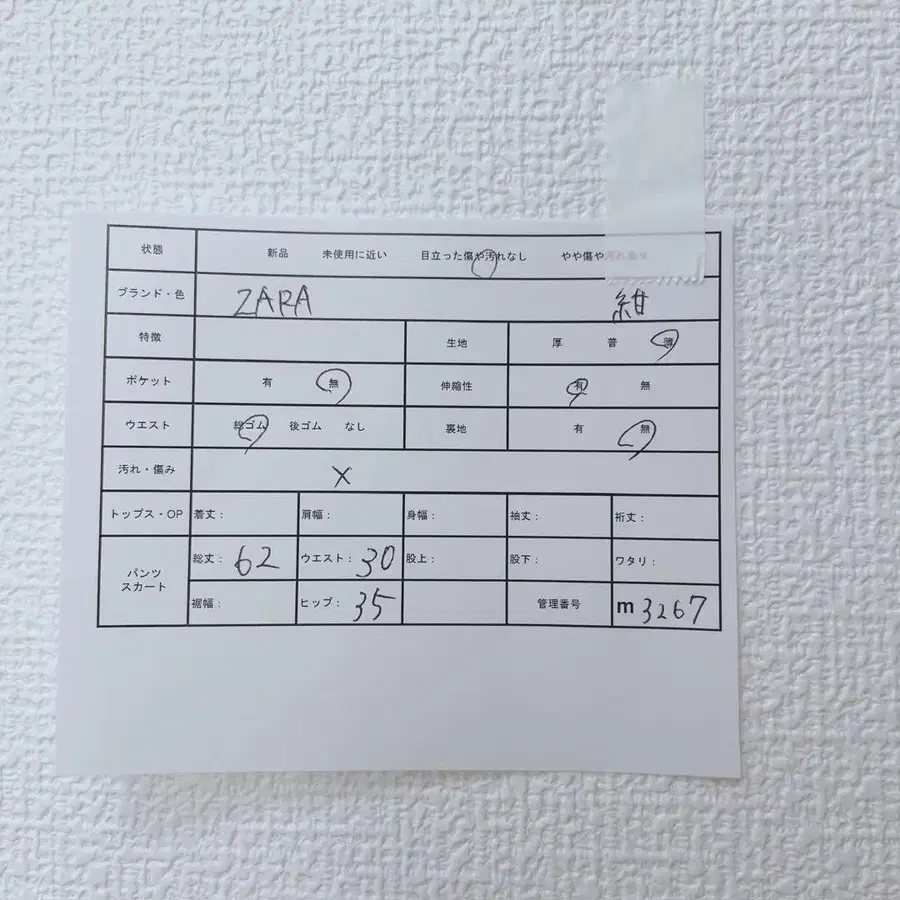 状態 新品 未使用に近い 目立った傷や汚れなし やや傷や汚れあり
ブランド・色 ZARA 紺
特徴 生地 厚 普 薄
ポケット 有 無 伸縮性 有 無
ウエスト 総ゴム 後ゴム なし 裏地 有 無
汚れ・傷み X
トップス・OP 着丈： 肩幅： 身幅： 袖丈： 裄丈：
パンツ
スカート
総丈：62 ウエスト：30 股上： 股下： ワタリ：
裾幅： ヒップ：35 管理番号 m3267